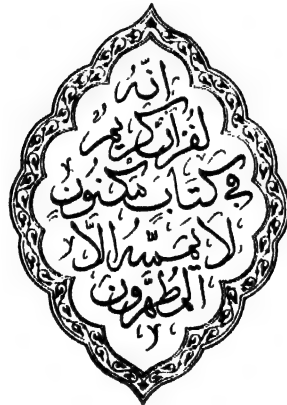 إنه
لقرآن كريم
في كتاب مكنون
لا يمسه إلا
المطهرون
لا